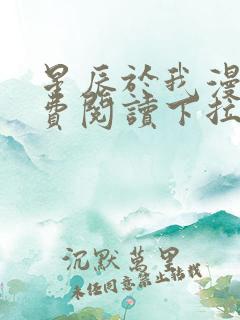 星辰於我漫
費閱讀下拉
沉默萬里
未经同意禁止转载